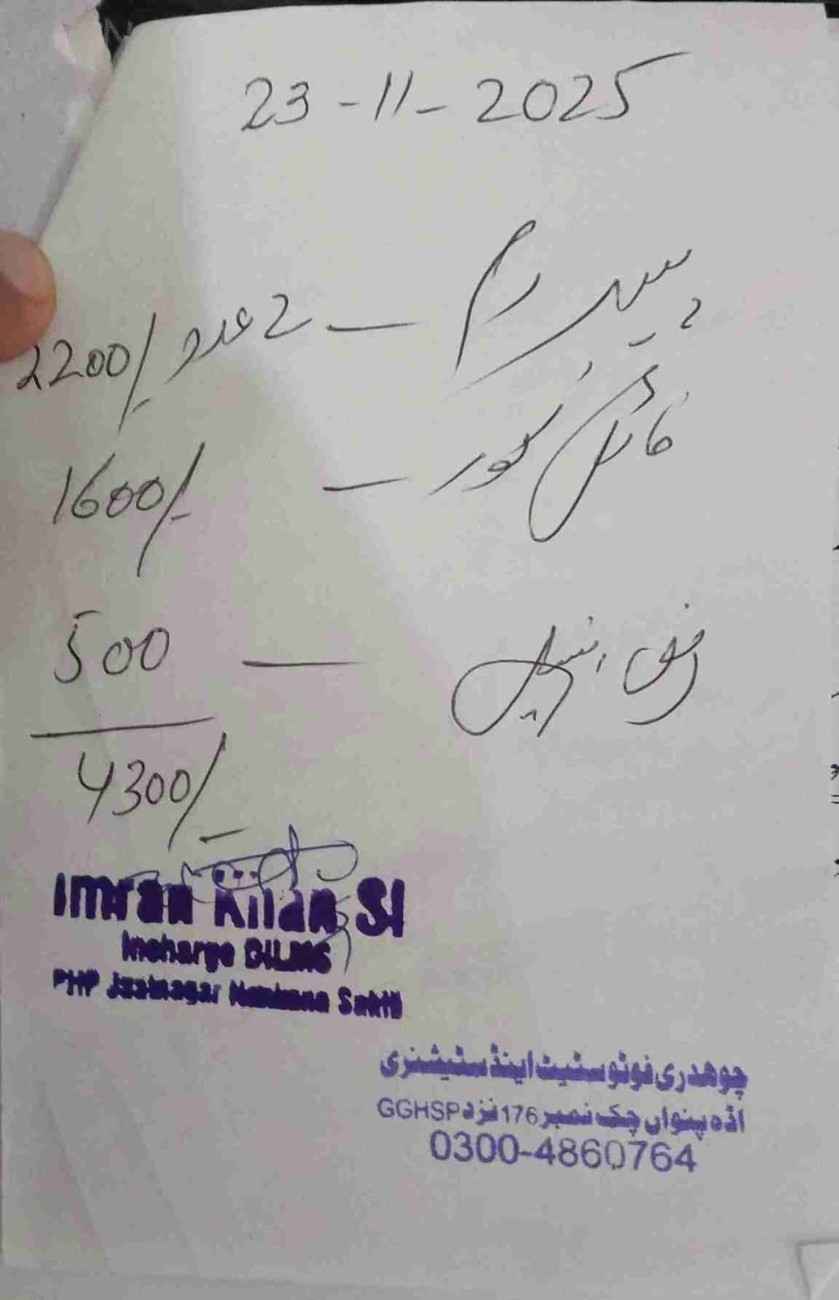 23-11-2025
پیپر رم — 2 عدد 2200/-
فائل کور — 1600/-
500 —
4300/-
Imran Khan SI
Incharge DILMS
PHP Jzatnagar Nankana Sahib
چوھدری فوٹو سٹیٹ اینڈ سٹیشنری
اڈہ پنواں چک نمبر 176 نزد GGHSP
0300-4860764